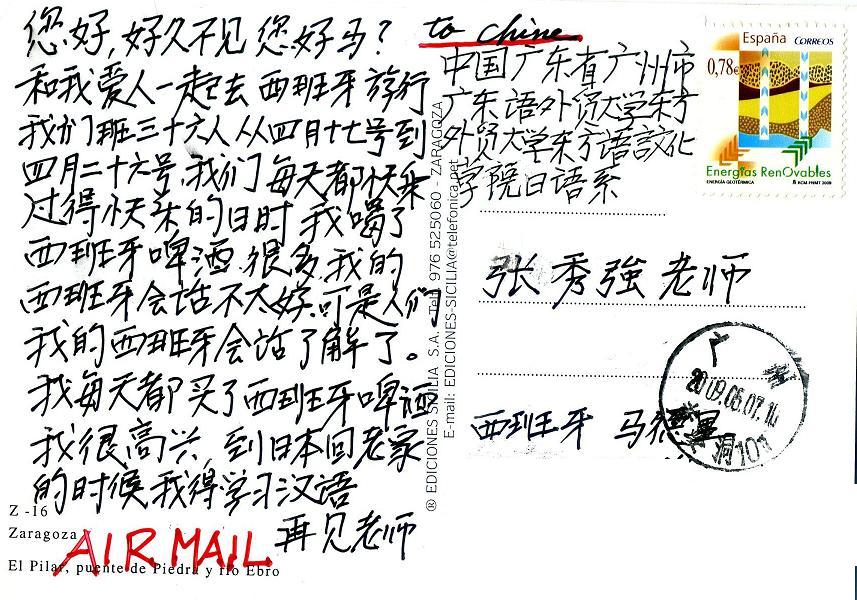 您好,好久不见您好马?
和我爱人一起去西班牙旅行
我们班三十六人从四月十七号到
四月二十六号,我们每天都快乐
过得快乐的日时我喝了
西班牙啤酒很多,我的
西班牙会话不太好.可是人们
我的西班牙会话了解了。
我每天都买了西班牙啤酒
我很高兴,到日本回老家
的时候我得学习汉语
再见老师
Z -16
Zaragoza
AIR MAIL
El Pilar, puente de Piedra y río Ebro
® EDICIONES SICILIA S.A. Tel. 976 525060 - ZARAGOZA
E-mail: EDICIONES-SICILIA@telefonica.net
to chine
中国广东省广州市
广东语外贸大学东方
外贸大学东方语言文化
学院日语系
张秀強老师
西班牙 马
España CORREOS
0,78€
Energías RenOvables
ENERGÍA GEOTÉRMICA
RCM-FNMT 2009
广
2009.06.07.1
洞101